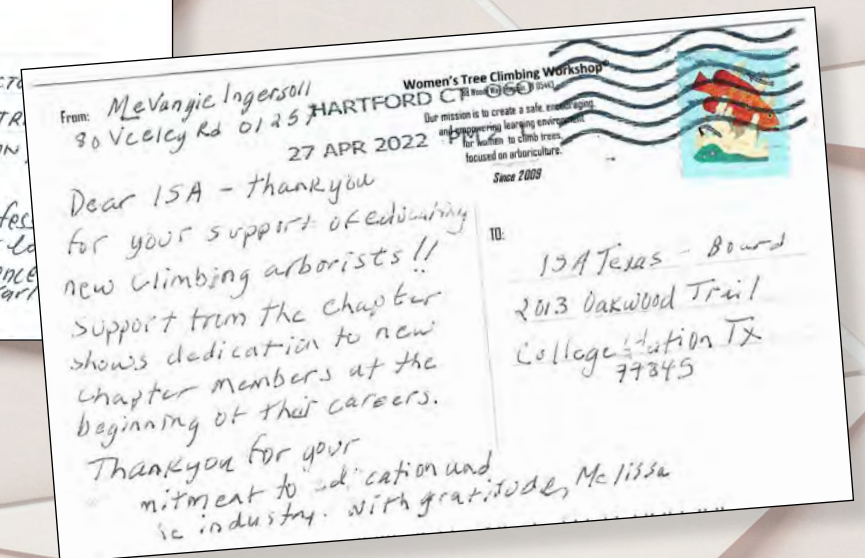 From: MeVangie Ingersoll
80 Veeley Rd 01257
Women's Tree Climbing Workshop®
Our mission is to create a safe, encouraging
and empowering learning environment
for women to climb trees,
focused on arboriculture.
Since 2009
HARTFORD CT
27 APR 2022 PM
Dear ISA - thankyou
for your support of educating
new climbing arborists!!
support from the chapter
shows dedication to new
chapter members at the
beginning of their careers.
Thankyou for your
mitment to cation und
industry. with gratitude, Melissa
TO:
ISA Texas - Board
2013 Oakwood Trail
College Station TX
77845